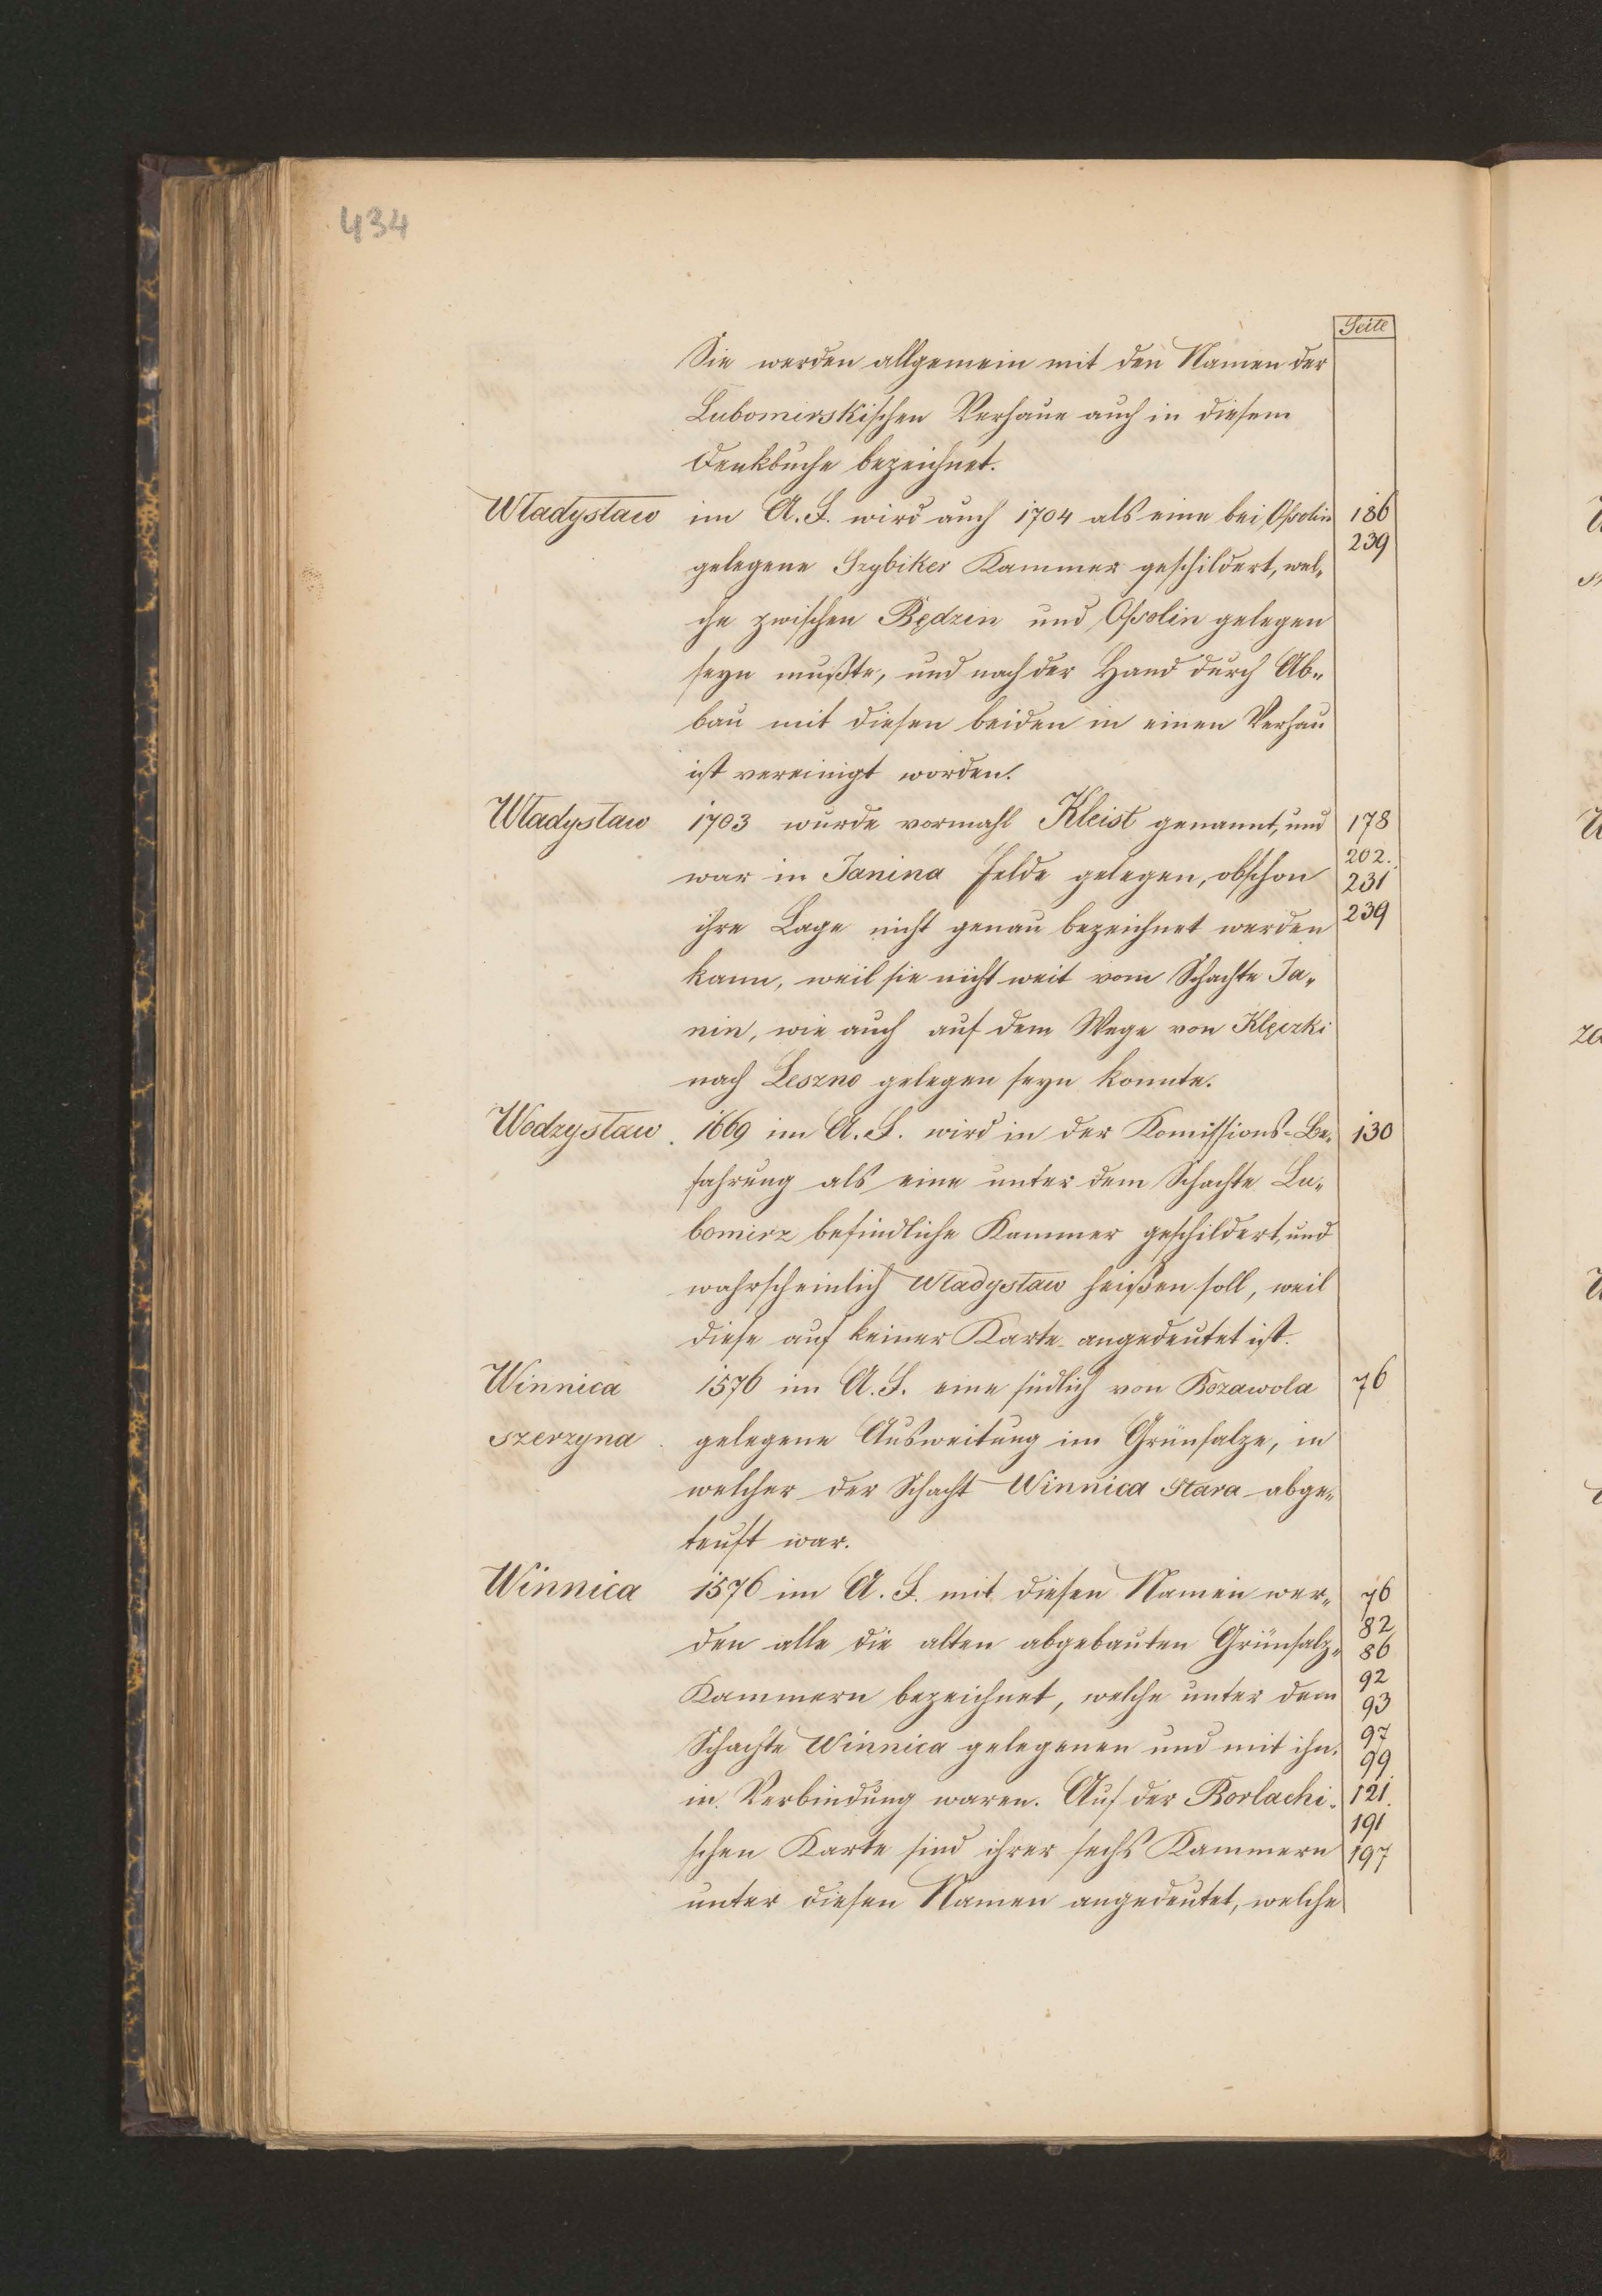 434
Seite
Sie werden allgemein mit den Namen der
Lubomirskischen Verhaue auch in diesem
Denkbuche bezeichnet.
Władysław im A. F. wird auch 1704 als eine bei Ossolin 186
239
gelegene Szybiker Kammer geschildert, wel-
che zwischen Będzin und Ossolin gelegen
seyn mußte, und nach der Hand durch Ab-
bau mit diesen beiden in einen Verhau
ist vereinigt worden.
Władysław 1703 wurde vormahl Kleist genannt, und 178
202.
war in Janina Felde gelegen, obschon 231
ihre Lage nicht genau bezeichnet werden 239
kann, weil sie nicht weit vom Schachte Ja-
nin, wie auch auf dem Wege von Klęczki
nach Leszno gelegen seyn konnte.
Wodzysław. 1669 im A. F. wird in der Komissions-Be- 130
fahrung als eine unter dem Schachte Lu-
bomirz befindliche Kammer geschildert, und
wahrscheinlich Władysław heißen soll, weil
diese auf keiner Karte angedeutet ist.
Winnica 1576 im A. F. eine südlich von Bozawola 76
szerzyna. gelegene Ausweitung im Grünsalze, in
welcher der Schacht Winnica Stara abge-
teuft war.
Winnica 1576 im A. F. mit diesen Namen wer- 76
82
den alle die alten abgebauten Grünsalz- 86
92
Kammern bezeichnet, welche unter dem 93
97
Schachte Winnica gelegenen und mit ihn. 99
in Verbindung waren. Auf der Borlachi- 121.
191
schen Karte sind ihrer sechs Kammern 197
unter diesen Namen angedeutet, welche